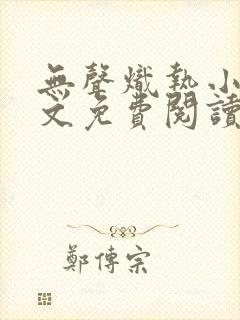 無聲熾執小
文免費閱讀
鄭傳宗